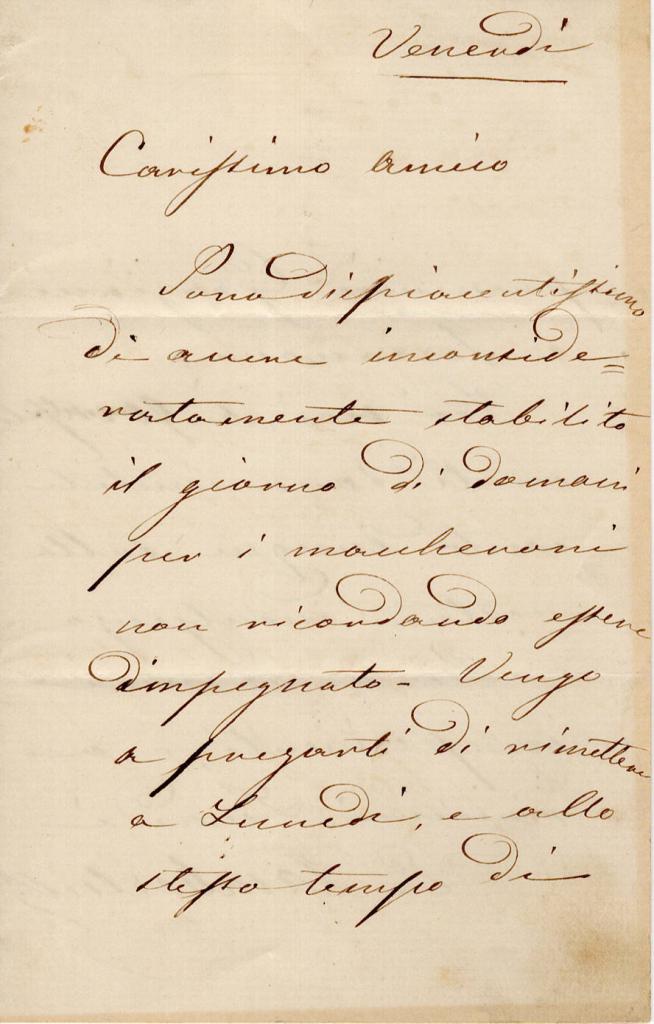 Venerdì
Carissimo amico
Sono dispiacentissimo
di avere inconside=
ratamente stabilito
il giorno di domani
per i maccheroni
non ricordando essere
impegnato - Vengo
a pregarti di rimettere
a Lunedì, e allo
stesso tempo di